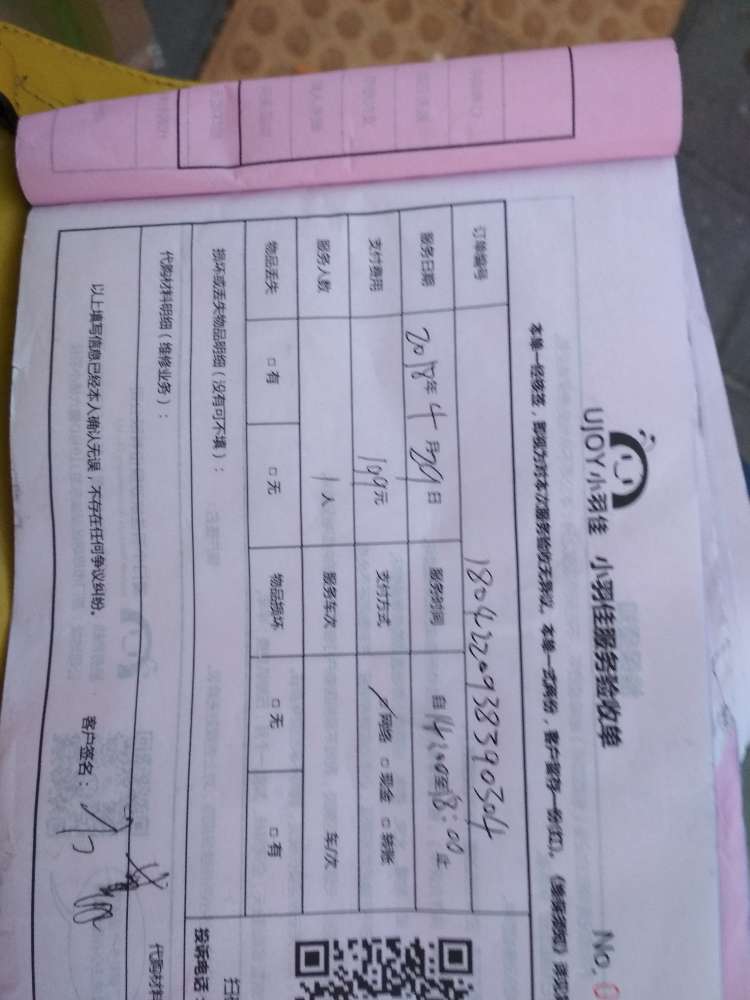 UJOY小羽佳 小羽佳服务验收单 No.0
本单一经签签，即视为对本次服务验收无异议。本单一式两份，客户留存一份(红)。
订单编号 180422093839 0304
服务日期 2018年4月29日 服务时间 自14:00至18:00止
支付费用 199元 支付方式 网络 □ 现金 □ 转账
服务人数 1人 服务车次 车/次
物品丢失 □ 有 □ 无 物品损坏 □ 无 □ 有
损坏或丢失物品明细（没有可不填）：
代购材料明细（维修业务）： 代购材料
以上填写信息已经本人确认无误，不存在任何争议纠纷。 客户签名：
投诉电话：